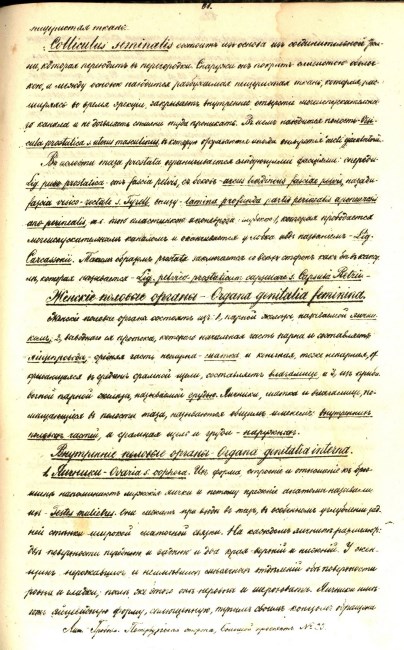 81.
пещеристая ткань.
Colliculus seminalis состоитъ изъ основа изъ соединительной тка-
ни, которая переходитъ въ перегородки. Снаружи покрытъ слизистою оболоч-
кою, и между основою находится разбухаемая пещеристая ткань, которая, рас-
ширяясь во время эрекціи, закрываетъ внутреннее отверстіе мочеиспускательна-
го канала и не дозволяетъ семени туда проникать. Въ немъ находится полость - Vesi-
cula prostatica s. uterus masculinus, въ которую
Въ полости таза prostata удерживается слѣдующими фасціями: спереди
Lig. pubo-prostatica - отъ fascia pelvis, съ боковъ - arcus tendineus fasciae pelvis, сзади -
fascia vesico-rectalis s. Tyrell, внизу - lamina profunda
ano perinealis, которая пробѣгается
мочеиспускательнымъ каналомъ и называется - Lig.
Carcassonii. Такимъ образомъ prostata находится со всѣхъ сторонъ какъ бы въ капсу-
лѣ, которая называется - Lig. pelvico-prostaticum capsulare s. Capsula Retzii.
Женскіе половые органы - Organa genitalia feminina.
Женскіе половые органы состоятъ изъ: 1, парной железы, называемой яични-
комъ; 2, выводнаго протока, котораго начальная часть парна и составляетъ
яйцепроводы, средняя часть непарна - матка и конечная, тоже непарная, от-
крывающаяся въ срединѣ срамной щели, составляетъ влагалище и 3, изъ приба-
вочной парной железы, называемой грудью. Яичники, матка и влагалище, по-
мѣщающіяся въ полости таза, называются общимъ именемъ: внутреннихъ
половыхъ частей, а срамная щель и груди - наружныхъ.
Внутренніе половые органы - Organa genitalia interna.
1. Яичники - Ovaria s. oophora. Ихъ форма, строеніе и отношеніе къ брю-
шинѣ напоминаютъ мужскія яички и потому прежніе анатомы называли
ихъ - testes muliebres. Они лежатъ при входѣ въ тазъ, въ особенномъ углубленіи зад-
ней стѣнки широкой маточной связки. На каждомъ яичникѣ различаютъ:
двѣ поверхности переднюю и заднюю и два края верхній и нижній. У жен-
щинъ нерожавшихъ и неимѣвшихъ обѣ поверхности
ровны и гладки, послѣ же этого онѣ неровны и шероховаты. Яичники имѣ-
ютъ яйцевидную форму, сплющенную, тупымъ своимъ концомъ обращены
Лит. Гробова. Петербургская сторона, Большой проспектъ № 33.